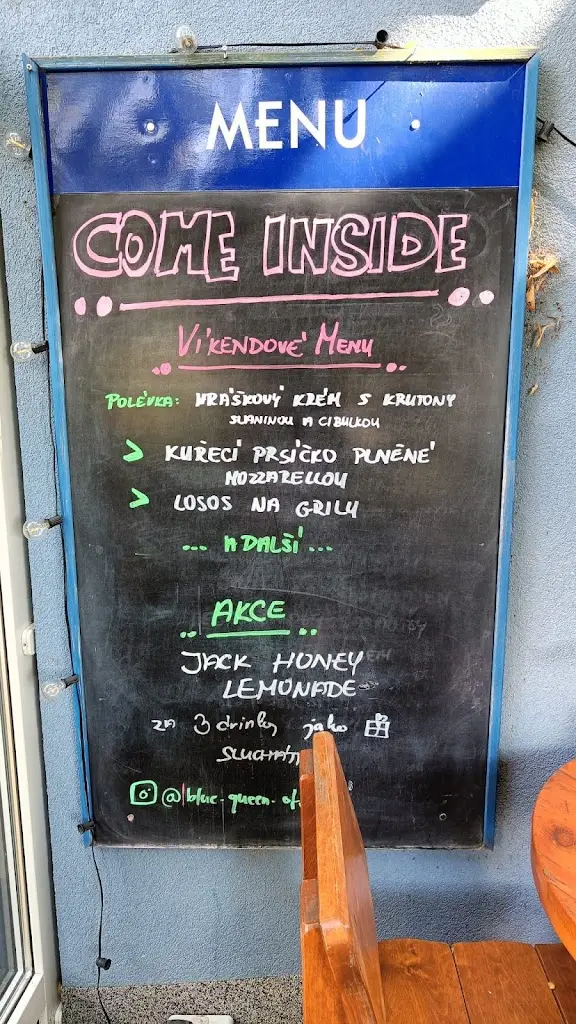 MENU
COME INSIDE
VÍKENDOVÉ MENU
POLÉVKA: HRÁŠKOVÝ KRÉM S KRUTONY
SLANINOU A CIBULKOU
> KUŘECÍ PRSÍČKO PLNĚNÉ
MOZZARELLOU
> LOSOS NA GRILU
... A DALŠÍ ...
AKCE
JACK HONEY
LEMONADE
ZA 3 drinky jako
@blue.queen.of